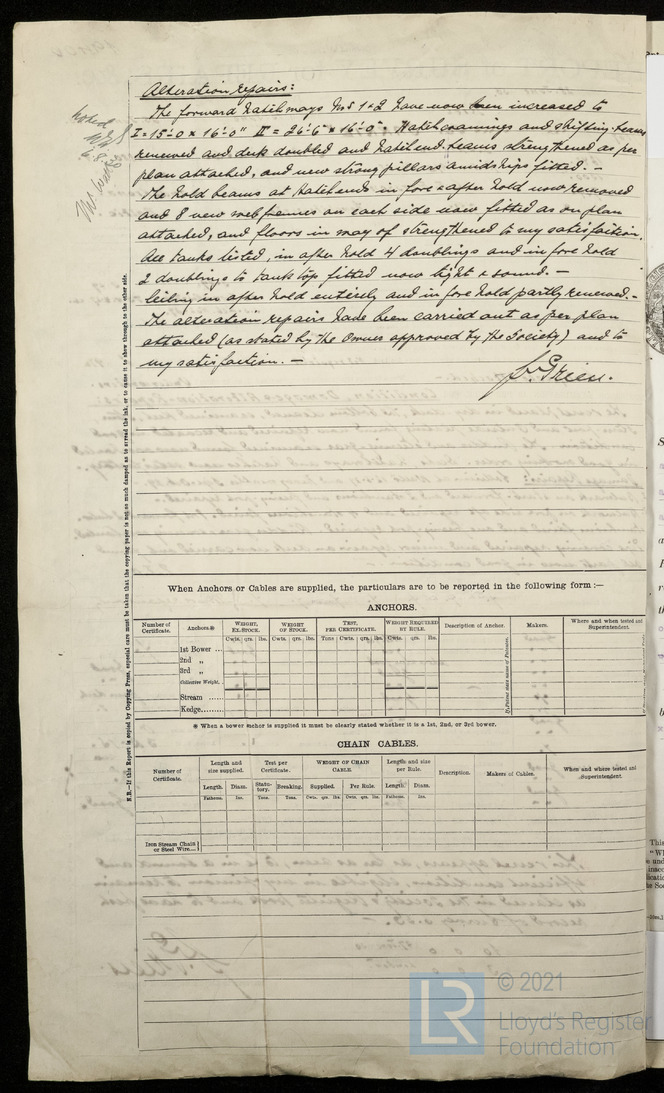 Alteration repairs:
The forward hatchways Nos 1+2 have now been increased to
I = 15'-0 x 16'-0" II = 26'-6" x 16'-0". Hatch coamings and shifting-beams
renewed and deck doubled and hatchend-beams strengthened as per
plan attached, and new strong pillars amidships fitted. —
The hold beams at hatchends in fore & after hold now removed
and 8 new web frames on each side now fitted as on plan
attached, and floors in way of strengthened to my satisfaction.
All tanks tested, in after hold 4 doublings and in fore hold
2 doublings to tank top fitted now tight & sound. —
Ceiling in after hold entirely and in fore hold partly renewed. —
The alteration repairs have been carried out as per plan
attached (as stated by the Owner approved by the Society) and to
my satisfaction. —
noted
N.B.—If this Report is copied by Copying Press, especial care must be taken that the copying paper is not so much damped as to spread the ink, or to cause it to show through to the other side.
When Anchors or Cables are supplied, the particulars are to be reported in the following form :—
ANCHORS.
Number of Certificate. Anchors.* WEIGHT, EX. STOCK. WEIGHT OF STOCK. TEST, PER CERTIFICATE. WEIGHT REQUIRED BY RULE. Description of Anchor. Makers. Where and when tested and Superintendent.
Cwts. qrs. lbs. Cwts. qrs. lbs. Tons Cwts. qrs. lbs. Cwts. qrs. lbs.
1st Bower ...
2nd „
3rd „
Collective Weight.
Stream ......
Kedge.........
If Patent state name of Patentee.
* When a bower anchor is supplied it must be clearly stated whether it is a 1st, 2nd, or 3rd bower.
CHAIN CABLES.
Number of Certificate. Length and size supplied. Test per Certificate. WEIGHT OF CHAIN CABLE. Length and size per Rule. Description. Makers of Cables. When and where tested and Superintendent.
Length. Diam. Statutory. Breaking. Supplied. Per Rule. Length. Diam.
Fathoms. Ins. Tons. Tons. Cwts. qrs. lbs. Cwts. qrs. lbs. Fathoms. Ins.
Iron Stream Chain or Steel Wire...
LR
© 2021
Lloyd's Register
Foundation